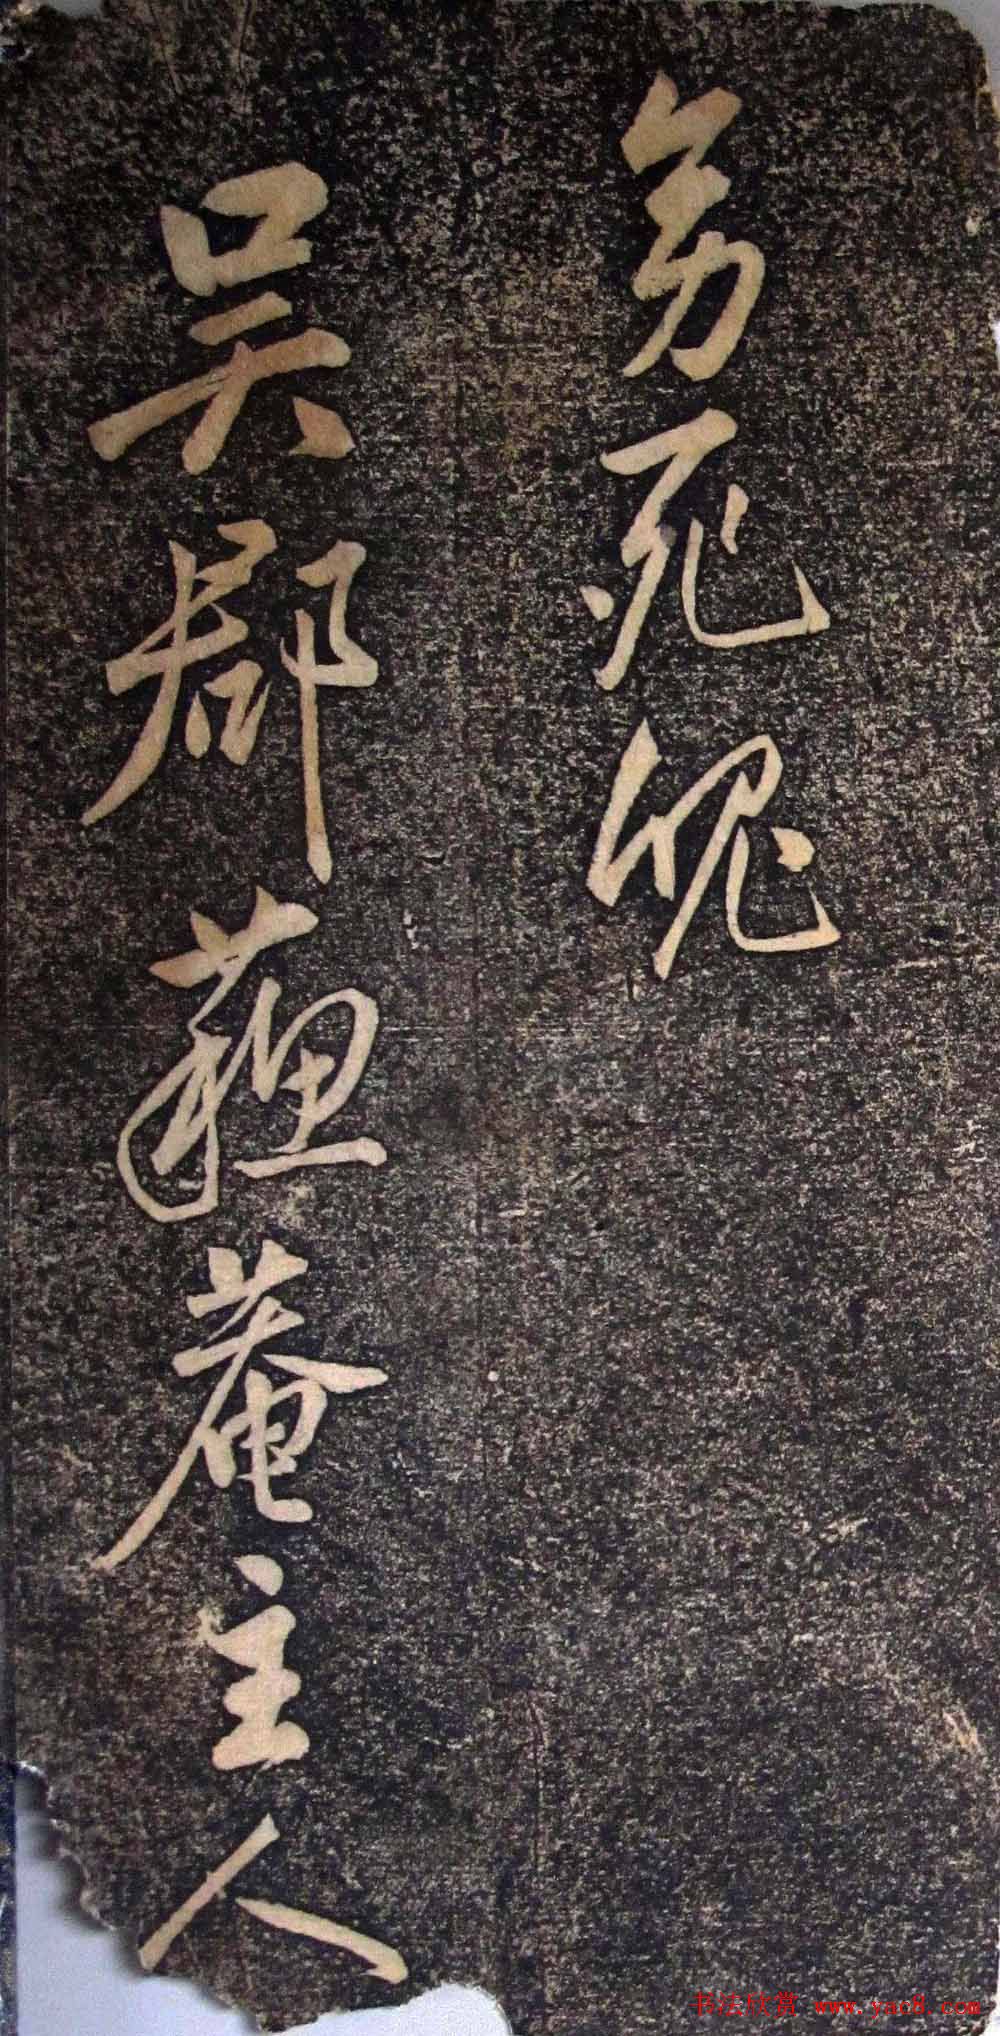 死愧
吴郡庵主人
书法欣赏 www.yac8.com